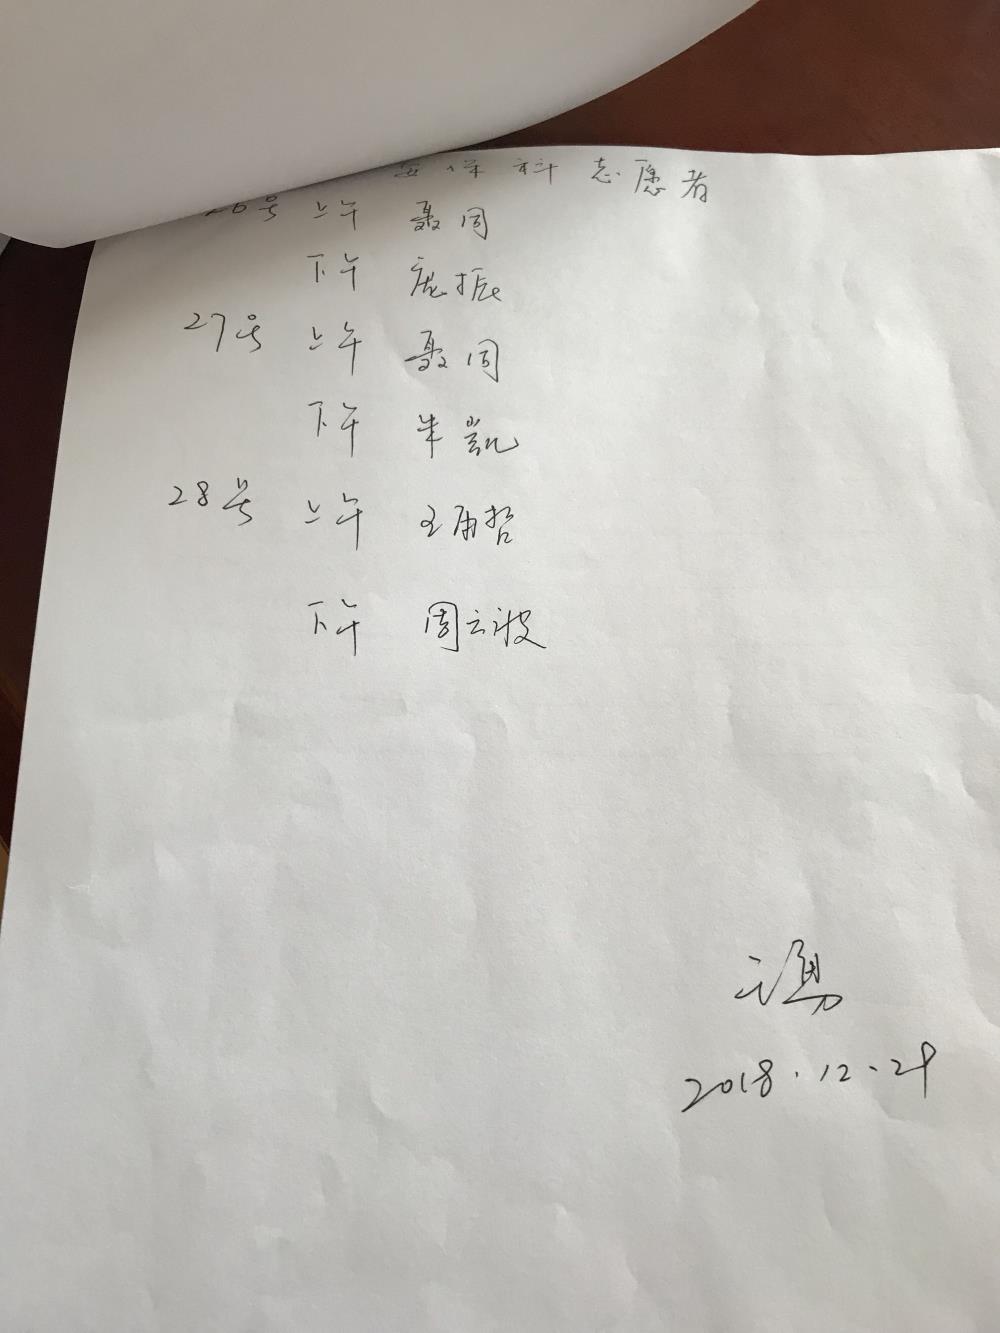 科志愿者
26号 上午 聂同
下午 庞振
27号 上午 聂同
下午 朱凯
28号 上午 王雨哲
下午 周云波
2018.12.29